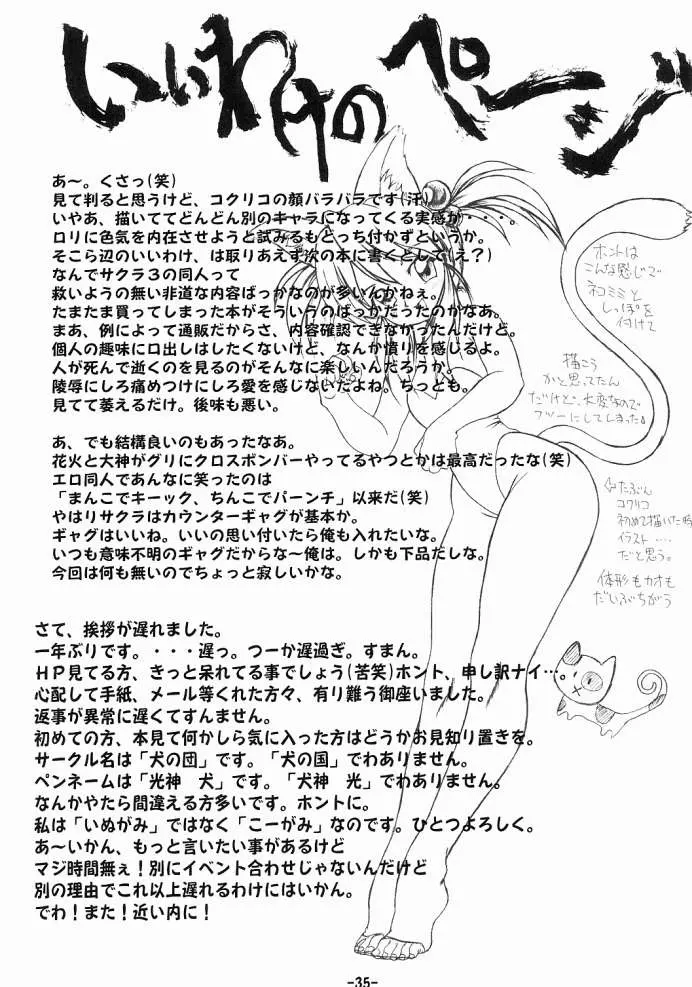 いいわけのページ
あ～。くさっ(笑)
見て判ると思うけど、コクリコの顔バラバラです(汗)
いやあ、描いててどんどん別のキャラになってくる実感が・・・・。
ロリに色気を内在させようと試みるもどっち付かずというか。
そこら辺のいいわけ、は取りあえず次の本に書くとして(え？)
なんでサクラ３の同人って
救いようの無い非道な内容ばっかなのが多いんかねぇ。
たまたま買ってしまった本がそういうのばっかだったのかなあ。
まあ、例によって通販だからさ、内容確認できなかったんだけど。
個人の趣味に口出しはしたくないけど、なんか憤りを感じるよ。
人が死んで逝くのを見るのがそんなに楽しいんだろうか。
陵辱にしろ痛めつけにしろ愛を感じないだよね。ちっとも。
見てて萎えるだけ。後味も悪い。
あ、でも結構良いのもあったなあ。
花火と大神がグリにクロスボンバーやってるやつとかは最高だったな(笑)
エロ同人であんなに笑ったのは
「まんこでキーック、ちんこでパーンチ」以来だ(笑)
やはりサクラはカウンターギャグが基本か。
ギャグはいいね。いいの思い付いたら俺も入れたいな。
いつも意味不明のギャグだからな～俺は。しかも下品だしな。
今回は何も無いのでちょっと寂しいかな。
さて、挨拶が遅れました。
一年ぶりです。・・・遅っ。つーか遅過ぎ。すまん。
ＨＰ見てる方、きっと呆れてる事でしょう(苦笑)ホント、申し訳ナイ…。
心配して手紙、メール等くれた方々、有り難う御座いました。
返事が異常に遅くてすんません。
初めての方、本見て何かしら気に入った方はどうかお見知り置きを。
サークル名は「犬の団」です。「犬の国」でわありません。
ペンネームは「光神　犬」です。「犬神　光」でわありません。
なんかやたら間違える方多いです。ホントに。
私は「いぬがみ」ではなく「こーがみ」なのです。ひとつよろしく。
あ～いかん、もっと言いたい事があるけど
マジ時間無ぇ！別にイベント合わせじゃないんだけど
別の理由でこれ以上遅れるわけにはいかん。
でわ！また！近い内に！
ホントは
こんな感じで
ネコミミと
しっぽを
付けて
描こう
かと思ってたん
だけど、大変なので
フツーにしてしまった。
⇦たぶん
コクリコ
初めて描いた時
イラスト….
だと思う。
体形もカオも
だいぶちがう
-35-